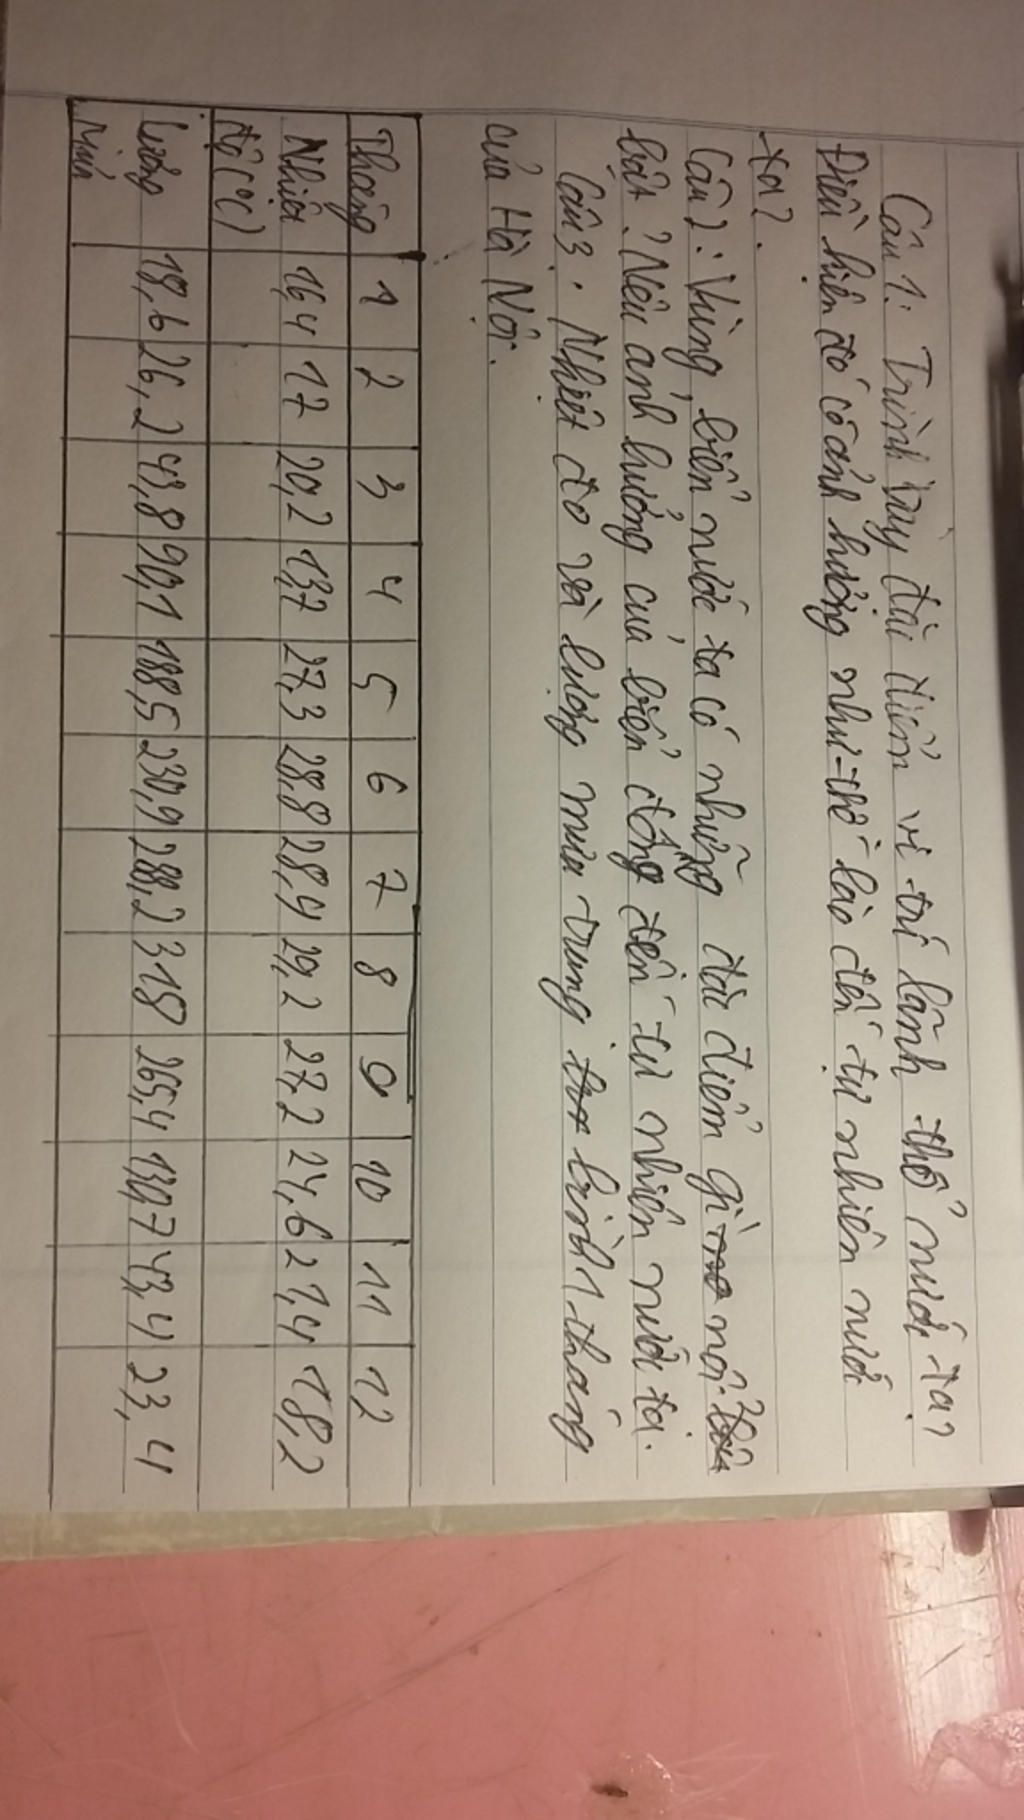 Câu 1: Trình bày đặc điểm vị trí lãnh thổ nước ta?
Điều kiện đó có ảnh hưởng như thế lào đến tự nhiên nước
ta?
Câu 2: Vùng biển nước ta có những đặc điểm gì nổi
bật? Nêu ảnh hưởng của biển đông đến tự nhiên nước ta.
Câu 3. Nhiệt độ và lượng mưa trung bình 1 tháng
của Hà Nội.
Tháng 1 2 3 4 5 6 7 8 9 10 11 12
Nhiệt độ (°C) 16,4 17 20,2 13,7 27,3 28,8 28,9 29,2 27,2 24,6 21,4 18,2
Lượng mưa 18,6 26,2 43,8 90,1 188,5 230,9 288,2 318 265,4 130,7 43,4 23,4